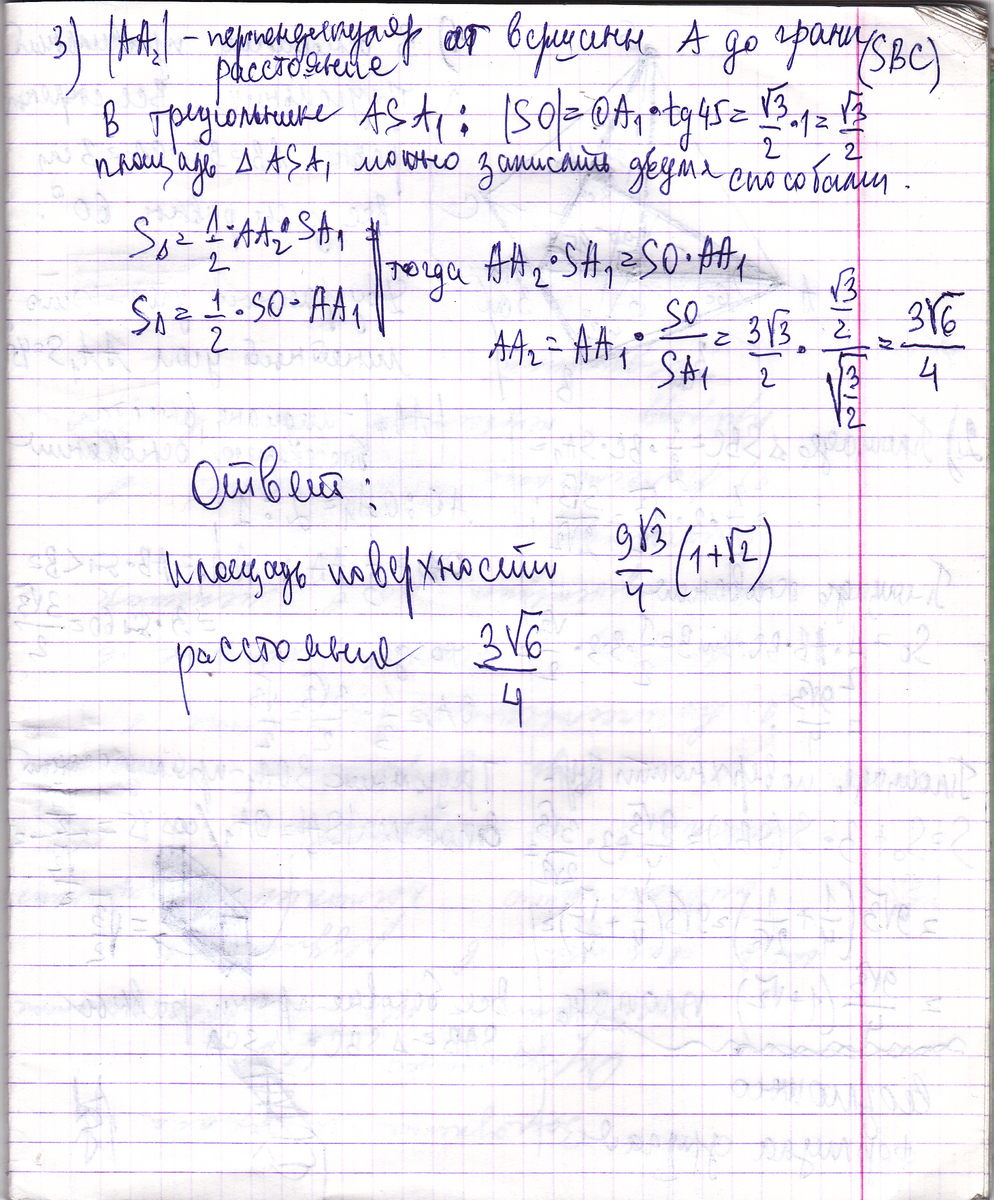 3) |AA₂| - перпендикуляр от вершины A до грани (SBC)
расстояние
В треугольнике ASA₁: |SO| = OA₁·tg45 = √3/2·1 = √3/2
площадь ΔASA₁ можно записать двумя способами.
S_Δ = 1/2·AA₂·SA₁
S_Δ = 1/2·SO·AA₁
тогда AA₂·SA₁ = SO·AA₁
AA₂ = AA₁·SO/SA₁ = 3√3/2·(√3/2)/√(3/2) = 3√6/4
Ответ:
площадь поверхности 9√3/4 (1+√2)
расстояние 3√6/4